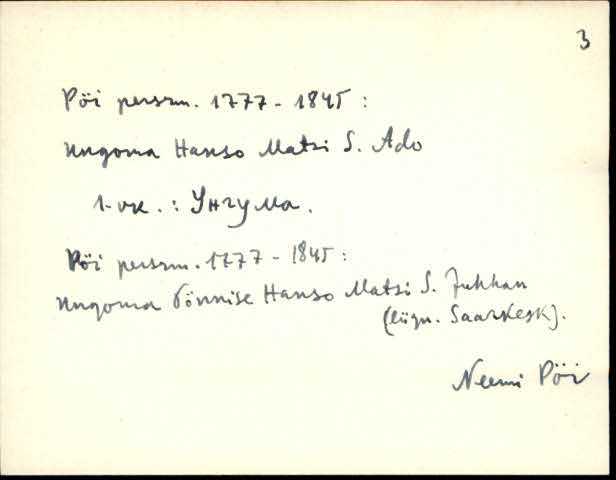 3
Pöi persrm. 1777 - 1845 :
Ungoma Hanso Matsi S. Ado
1-vk. : Унгума.
Pöi persrm. 1777 - 1845 :
Ungoma Tönnise Hanso Matsi S. Juhhan
(liign. Saarkesk).
Neemi Pöi